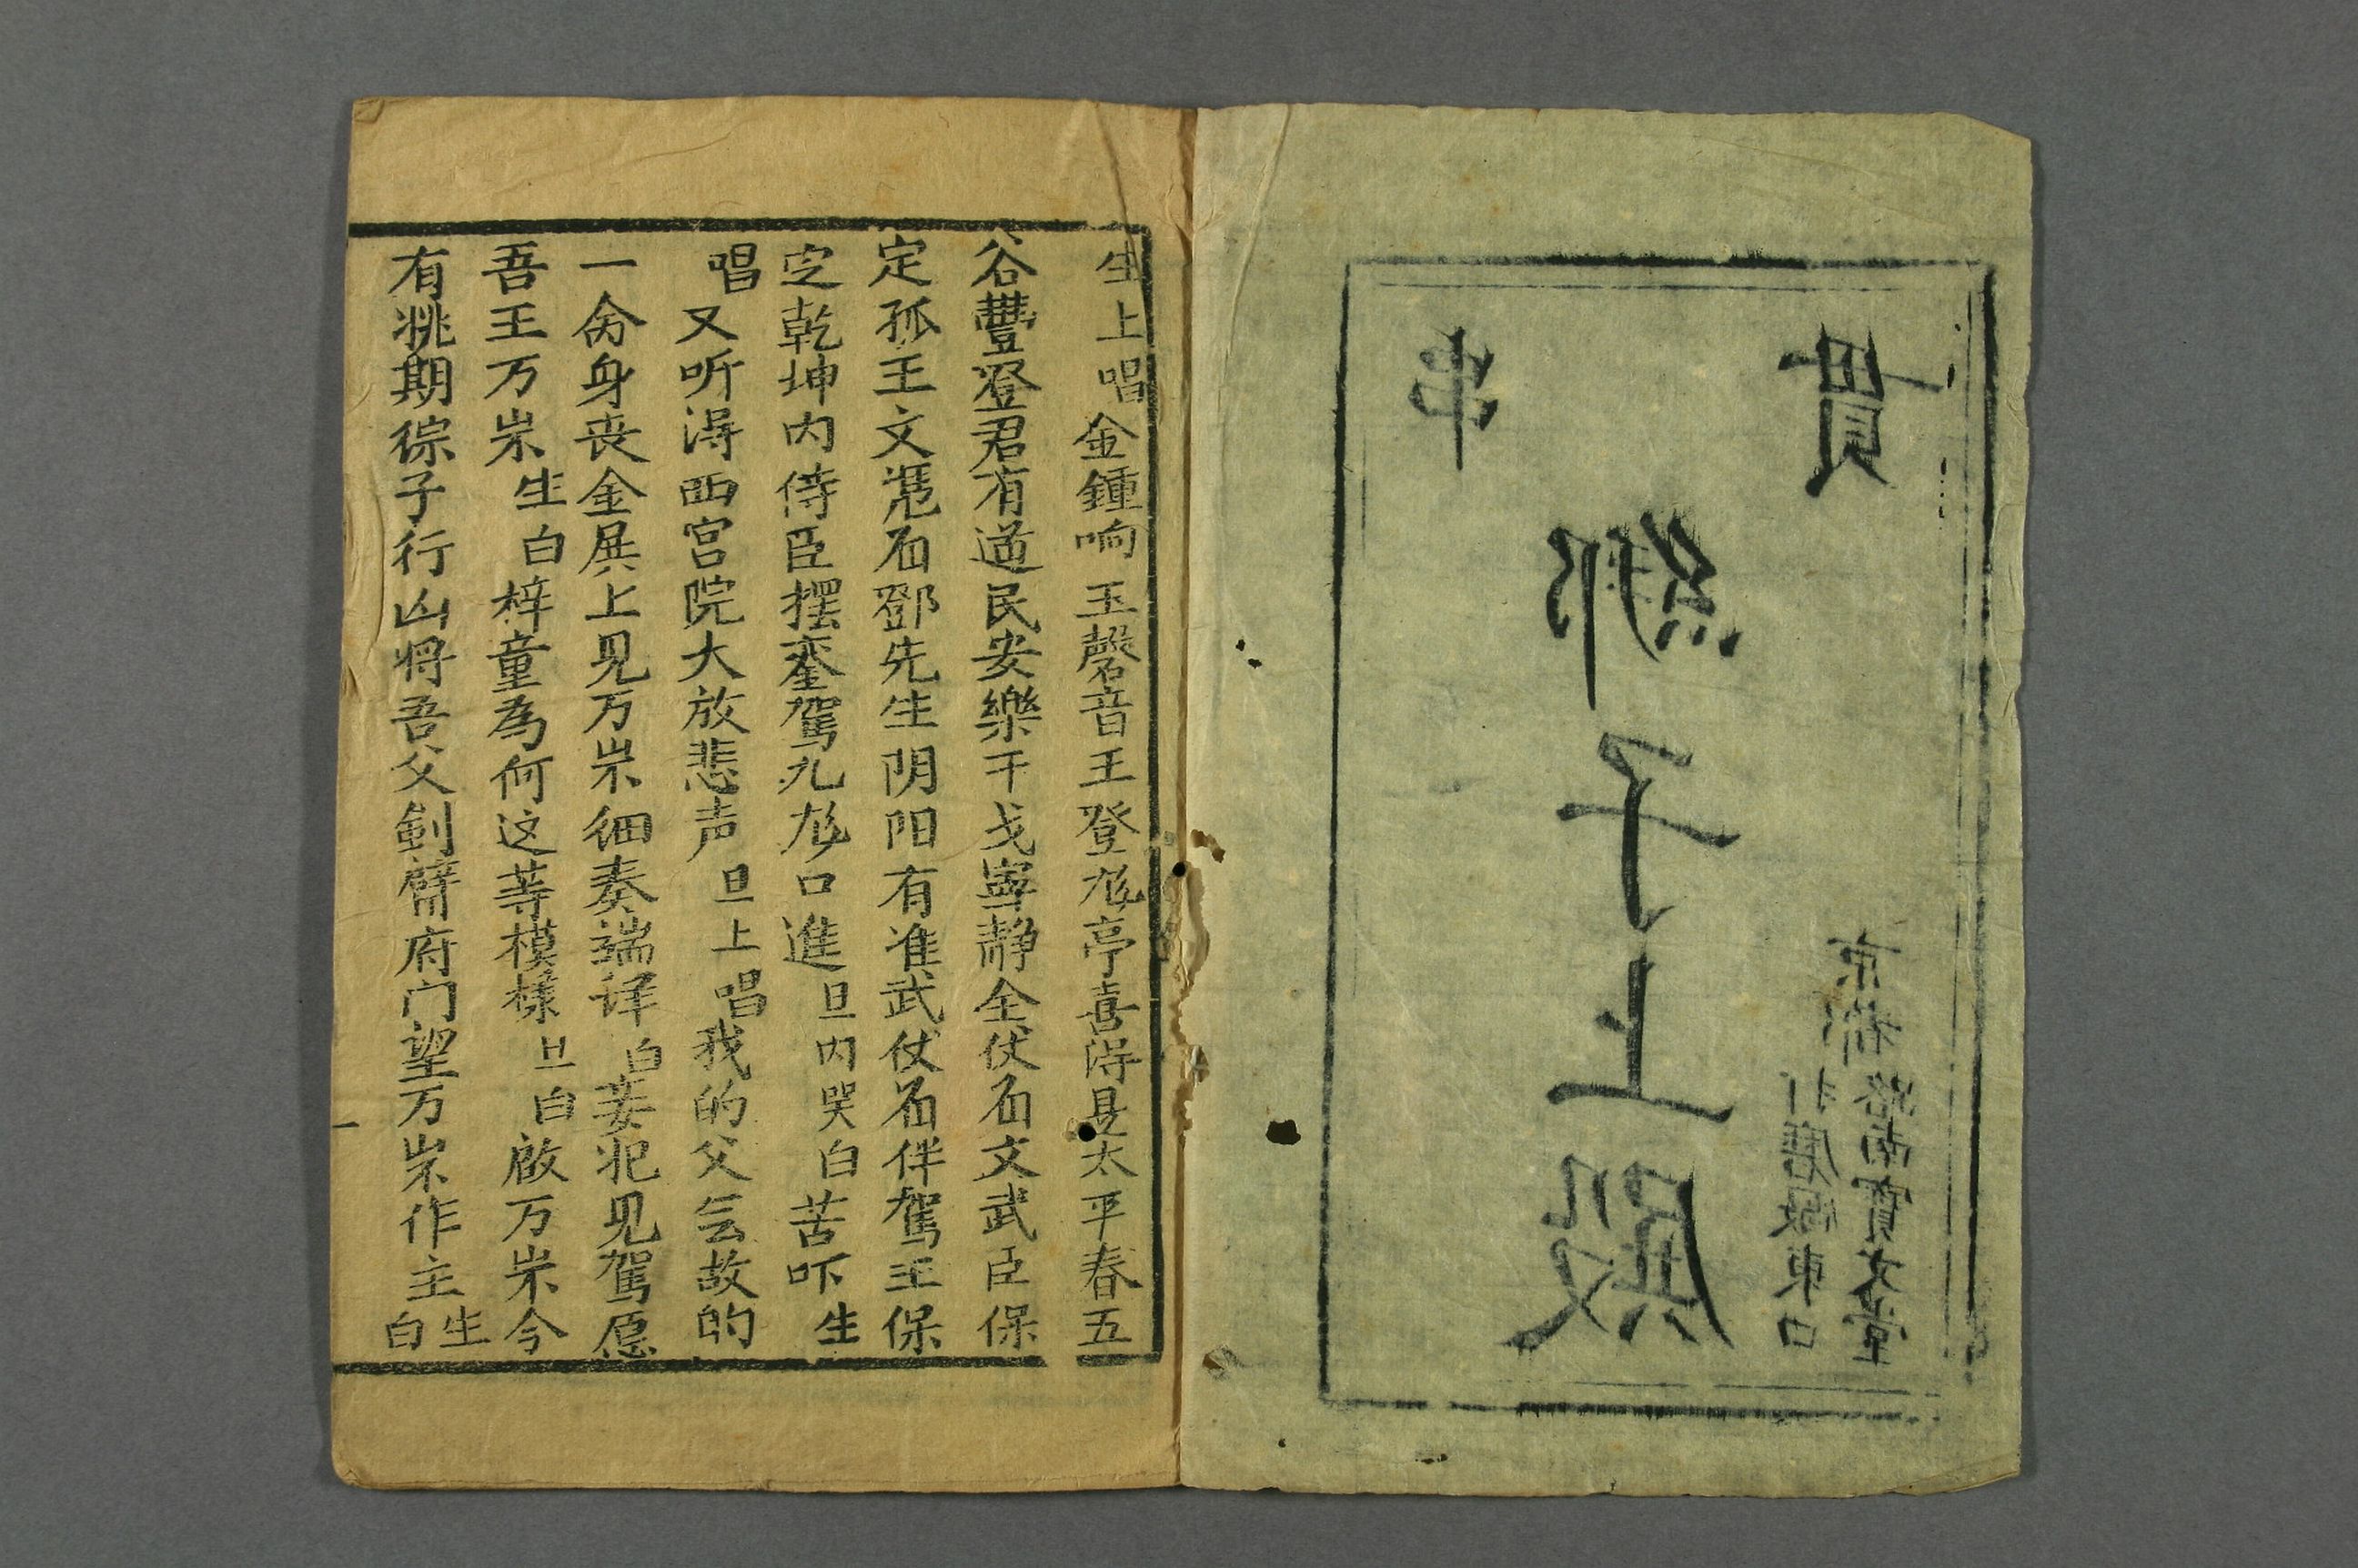 貫串
綁子上殿
京都
打磨廠東口
路南寳文堂
生上唱金鍾响玉磬音王登龙亭喜淂是太平春五
谷豐登君有道民安樂干戈寧静全伏着文武臣保
定孤王文凴着鄧先生阴阳有准武仗着伴駕王保
定乾坤内侍臣摆銮駕九龙口進旦内哭白苦吓生
唱又听淂西宫院大放悲声旦上唱我的父去故的
一命身丧金殿上见万岁细奏端详白妾犯见駕愿
吾王万岁生白梓童為何这等模樣旦白啟万岁今
有姚期綁子行凶将吾父剑劈府门望万岁作主生白
一